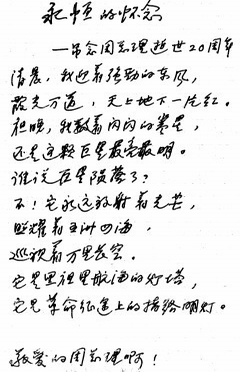 永恒的怀念
—吊念周总理逝世20周年
清晨，我迎着强劲的东风，
霞光万道，天上地下一片红。
夜晚，我数着闪闪的繁星，
还是这颗巨星最亮最明。
谁说巨星陨落了？
不！它永远放射着光芒，
照耀着五洲四海，
巡视着万里长空。
它是里程里航海的灯塔，
它是革命征途上的指路明灯。
敬爱的周总理啊！